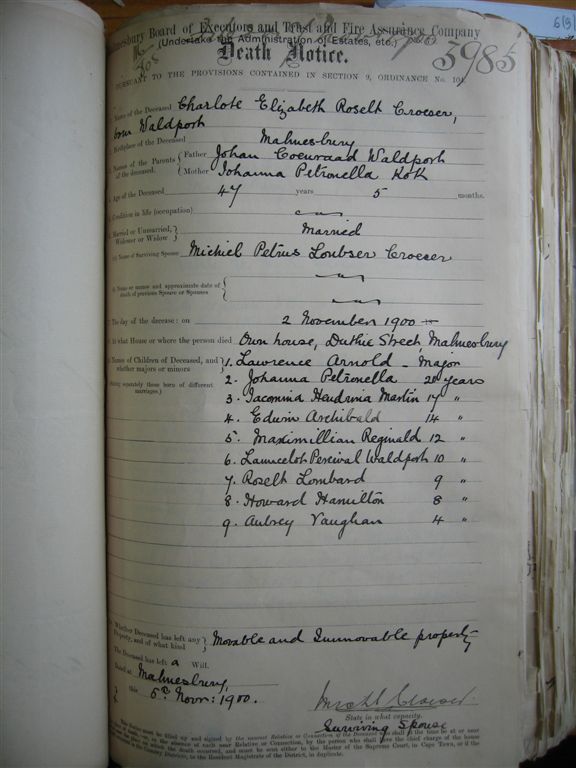 Malmesbury Board of Executors and Trust and Fire Assurance Company
(Undertake the Administration of Estates, etc.)
Death Notice.
3985
PURSUANT TO THE PROVISIONS CONTAINED IN SECTION 9, ORDINANCE No. 104.
Name of the Deceased Charlote Elizabeth Roselt Croeser,
born Waldpoth
Birthplace of the Deceased Malmesbury
Names of the Parents of the deceased. Father Johan Coenraad Waldpoth
Mother Johanna Petronella Kotk
Age of the Deceased 47 years 5 months.
Condition in life (occupation)
Married or Unmarried, Widower or Widow Married
Name of Surviving Spouse Michiel Petrus Loubser Croeser
Name or names and approximate date of death of previous Spouse or Spouses
The day of the decease: on 2 November 1900
At what House or where the person died Own house, Duthie Street, Malmesbury
Names of Children of Deceased, and whether majors or minors 1. Lawrence Arnold - Major
(Stating separately those born of different marriages.) 2. Johanna Petronella 20 years
3. Jacomina Hendrina Martin 17 "
4. Edwin Archibald 14 "
5. Maximillian Reginald 12 "
6. Launcelot Percival Waldpoth 10 "
7. Roselt Lombard 9 "
8. Howard Hamilton 8 "
9. Aubrey Vaughan 4 "
Whether Deceased has left any Property, and of what kind Movable and Immovable property
The Deceased has left a Will.
Dated at Malmesbury,
this 5th Novr: 1900.
State in what capacity.
Surviving Spouse